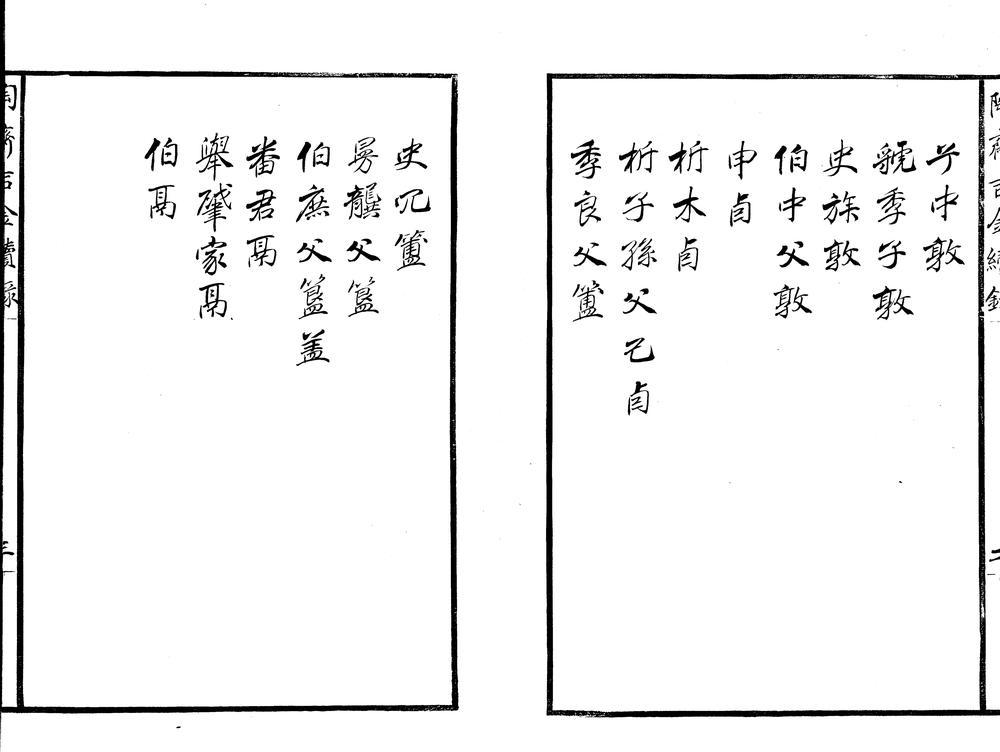 陶齋吉金續錄
二
兮中敦
虢季子敦
史族敦
伯中父敦
申卣
析木卣
析子孫父乙卣
季良父簠
史冗簠
㝵龔父簋
伯庶父簋盖
番君鬲
舉肈家鬲
伯鬲
陶齋吉金續錄
三